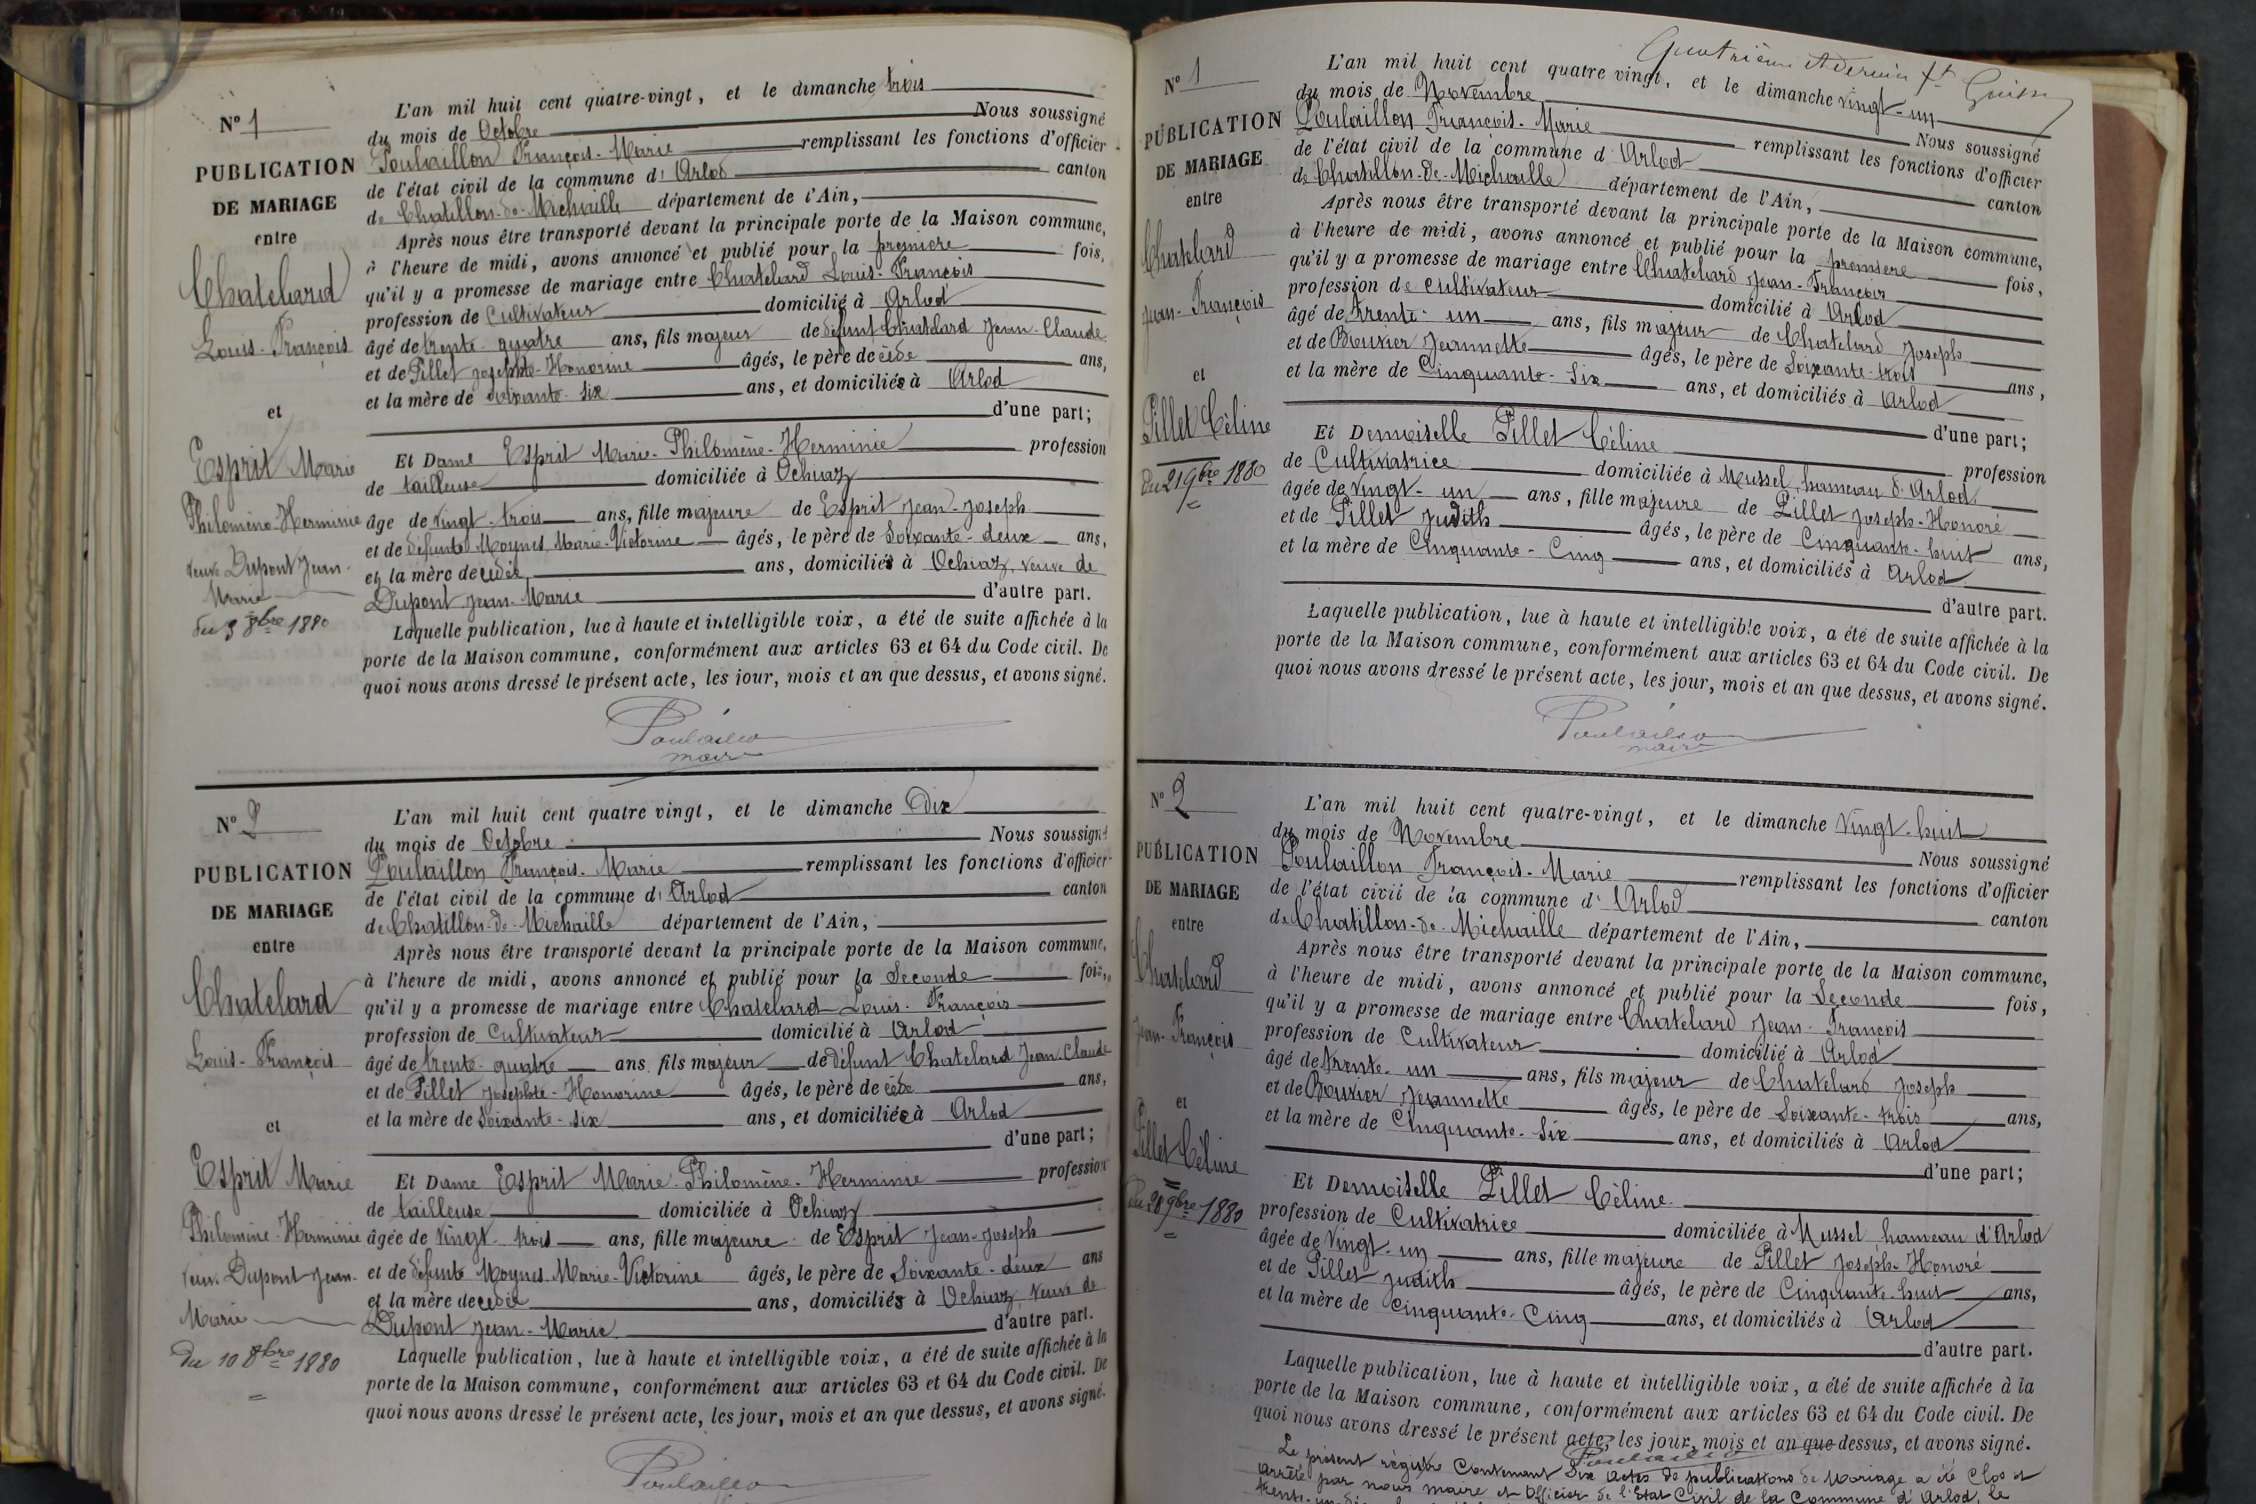 Nº 1
PUBLICATION
DE MARIAGE
entre
Chatelard
Louis-François
et
Esprit Marie
Philomène-Herminie
veuve Dupont Jean-
Marie
du 3 8bre 1880
L'an mil huit cent quatre-vingt, et le dimanche trois
du mois de Octobre Nous soussigné
Poulaillon François-Marie remplissant les fonctions d'officier
de l'état civil de la commune d' Arlod canton
de Chatillon-de-Michaille département de l'Ain,
Après nous être transporté devant la principale porte de la Maison commune,
à l'heure de midi, avons annoncé et publié pour la première fois,
qu'il y a promesse de mariage entre Chatelard Louis-François
profession de Cultivateur domicilié à Arlod
âgé de trente-quatre ans, fils majeur de défunt Chatelard Jean-Claude
et de Pillet Josephte-Honorine âgés, le père décédé ans,
et la mère de soixante-six ans, et domiciliés à Arlod
d'une part;
Et Dame Esprit Marie-Philomène-Herminie profession
de tailleuse domiciliée à Ochiaz
âge de vingt-trois ans, fille majeure de Esprit Jean-Joseph
et de défunte Moynet Marie-Victorine âgés, le père de Soixante-deux ans,
et la mère décédée ans, domiciliés à Ochiaz, veuve de
Dupont Jean-Marie d'autre part.
Laquelle publication, lue à haute et intelligible voix, a été de suite affichée à la
porte de la Maison commune, conformément aux articles 63 et 64 du Code civil. De
quoi nous avons dressé le présent acte, les jour, mois et an que dessus, et avons signé.
Poulaillon
maire
Nº 2
PUBLICATION
DE MARIAGE
entre
Chatelard
Louis-François
et
Esprit Marie
Philomène-Herminie
veuve Dupont Jean-
Marie
Du 10 8bre 1880
L'an mil huit cent quatre vingt, et le dimanche Dix
du mois de Octobre Nous soussigné
Poulaillon François-Marie remplissant les fonctions d'officier
de l'état civil de la commune d' Arlod canton
de Chatillon-de-Michaille département de l'Ain,
Après nous être transporté devant la principale porte de la Maison commune,
à l'heure de midi, avons annoncé et publié pour la Seconde fois,
qu'il y a promesse de mariage entre Chatelard Louis-François
profession de Cultivateur domicilié à Arlod
âgé de trente-quatre ans, fils majeur de défunt Chatelard Jean-Claude
et de Pillet Josephte-Honorine âgés, le père décédé ans,
et la mère de Soixante-six ans, et domiciliés à Arlod
d'une part;
Et Dame Esprit Marie-Philomène-Herminie profession
de tailleuse domiciliée à Ochiaz
âgée de vingt-trois ans, fille majeure de Esprit Jean-Joseph
et de défunte Moynet Marie-Victorine âgés, le père de Soixante-deux ans
et la mère décédée ans, domiciliés à Ochiaz, veuve de
Dupont Jean-Marie d'autre part.
Laquelle publication, lue à haute et intelligible voix, a été de suite affichée à la
porte de la Maison commune, conformément aux articles 63 et 64 du Code civil. De
quoi nous avons dressé le présent acte, les jour, mois et an que dessus, et avons signé.
Poulaillon
Quatrième et dernier ft
Nº 1
PUBLICATION
DE MARIAGE
entre
Chatelard
Jean-François
et
Pillet Céline
Du 21 9bre 1880
L'an mil huit cent quatre vingt, et le dimanche vingt-un
du mois de Novembre Nous soussigné
Poulaillon François-Marie remplissant les fonctions d'officier
de l'état civil de la commune d' Arlod canton
de Chatillon-de-Michaille département de l'Ain,
Après nous être transporté devant la principale porte de la Maison commune,
à l'heure de midi, avons annoncé et publié pour la première fois,
qu'il y a promesse de mariage entre Chatelard Jean-François
profession de cultivateur domicilié à Arlod
âgé de trente-un ans, fils majeur de Chatelard Joseph
et de Bouvier Jeannette âgés, le père de Soixante-trois ans,
et la mère de Cinquante-Six ans, et domiciliés à Arlod
d'une part;
Et Demoiselle Pillet Céline profession
de Cultivatrice domiciliée à Mussel, hameau d'Arlod
âgée de vingt-un ans, fille majeure de Pillet Joseph-Honoré
et de Pillet Judith âgés, le père de Cinquante-huit ans,
et la mère de Cinquante-Cinq ans, et domiciliés à Arlod
d'autre part.
Laquelle publication, lue à haute et intelligible voix, a été de suite affichée à la
porte de la Maison commune, conformément aux articles 63 et 64 du Code civil. De
quoi nous avons dressé le présent acte, les jour, mois et an que dessus, et avons signé.
Poulaillon
maire
Nº 2
PUBLICATION
DE MARIAGE
entre
Chatelard
Jean-François
et
Pillet Céline
Du 28 9bre 1880
L'an mil huit cent quatre-vingt, et le dimanche Vingt-huit
du mois de Novembre Nous soussigné
Poulaillon François-Marie remplissant les fonctions d'officier
de l'état civil de la commune d' Arlod canton
de Chatillon-de-Michaille département de l'Ain,
Après nous être transporté devant la principale porte de la Maison commune,
à l'heure de midi, avons annoncé et publié pour la Seconde fois,
qu'il y a promesse de mariage entre Chatelard Jean-François
profession de Cultivateur domicilié à Arlod
âgé de trente-un ans, fils majeur de Chatelard Joseph
et de Bouvier Jeannette âgés, le père de Soixante-trois ans,
et la mère de Cinquante-Six ans, et domiciliés à Arlod
d'une part;
Et Demoiselle Pillet Céline
profession de Cultivatrice domiciliée à Mussel hameau d'Arlod
âgée de Vingt-un ans, fille majeure de Pillet Joseph-Honoré
et de Pillet Judith âgés, le père de Cinquante-huit ans,
et la mère de Cinquante-Cinq ans, et domiciliés à Arlod
d'autre part.
Laquelle publication, lue à haute et intelligible voix, a été de suite affichée à la
porte de la Maison commune, conformément aux articles 63 et 64 du Code civil. De
quoi nous avons dressé le présent acte, les jour, mois et an que dessus, et avons signé.
Poulaillon
Le présent régistre Contenant Six actes de publications de Mariage a été Clos et
arrêté par nous maire et Officier de l'Etat Civil de la Commune d'Arlod, le